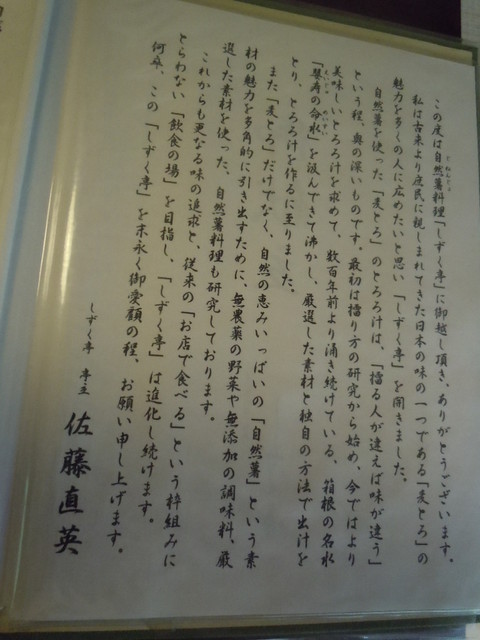 この度は自然薯料理「しずく亭」に御越し頂き、ありがとうございます。
私は古来より庶民に親しまれてきた日本の味の一つである「麦とろ」の
魅力を多くの人に広めたいと思い「しずく亭」を開きました。
自然薯を使った「麦とろ」のとろろ汁は、「擂る人が違えば味が違う」
という程、奥の深いものです。最初は擂り方の研究から始め、今ではより
美味しいとろろ汁を求めて、数百年前より涌き続けている、箱根の名水
「嬰寿の命水」を汲んできて沸かし、厳選した素材と独自の方法で出汁を
とり、とろろ汁を作るに至りました。
また「麦とろ」だけでなく、自然の恵みいっぱいの「自然薯」という素
材の魅力を多角的に引き出すために、無農薬の野菜や無添加の調味料、厳
選した素材を使った、自然薯料理も研究しております。
これからも更なる味の追求と、従来の「お店で食べる」という枠組みに
とらわない「飲食の場」を目指し、「しずく亭」は進化し続けます。
何卒、この「しずく亭」を末永く御愛顧の程、お願い申し上げます。
しずく亭 亭主 佐藤直英